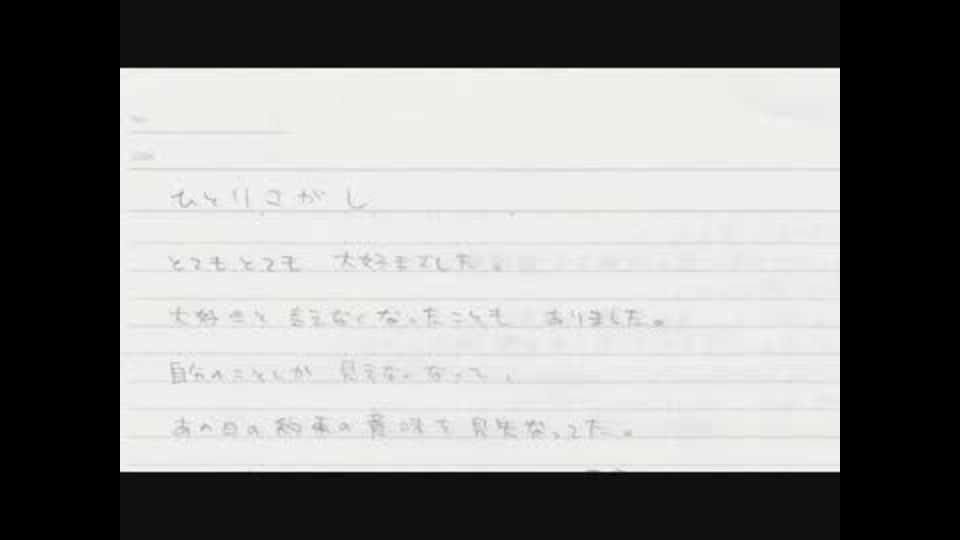 ひとりさがし
とてもとても 大好きでした。
大好きと言えなくなったことも ありました。
自分のことしか 見えなくなって、
あの日の約束の意味を見失なってた。